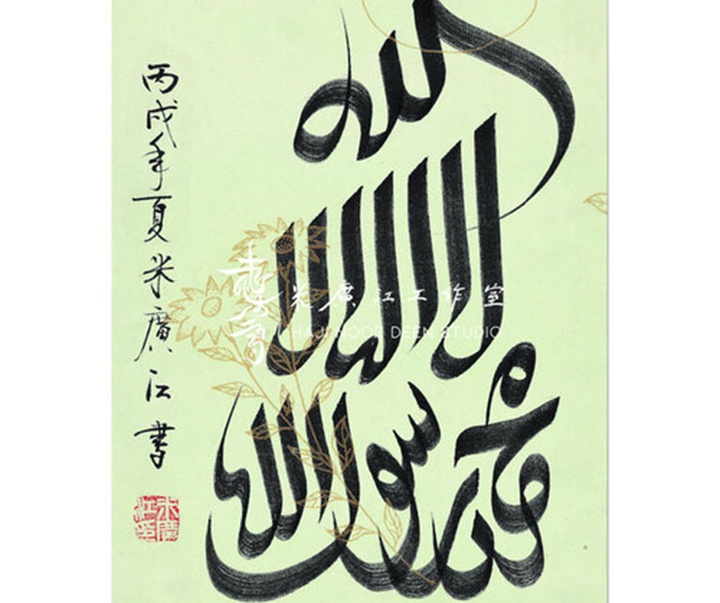 لا اله الا الله
محمد رسول الله
丙戌年夏米廣江書
米廣江印
米廣江工作室
HAJI NOOR DEEN STUDIO